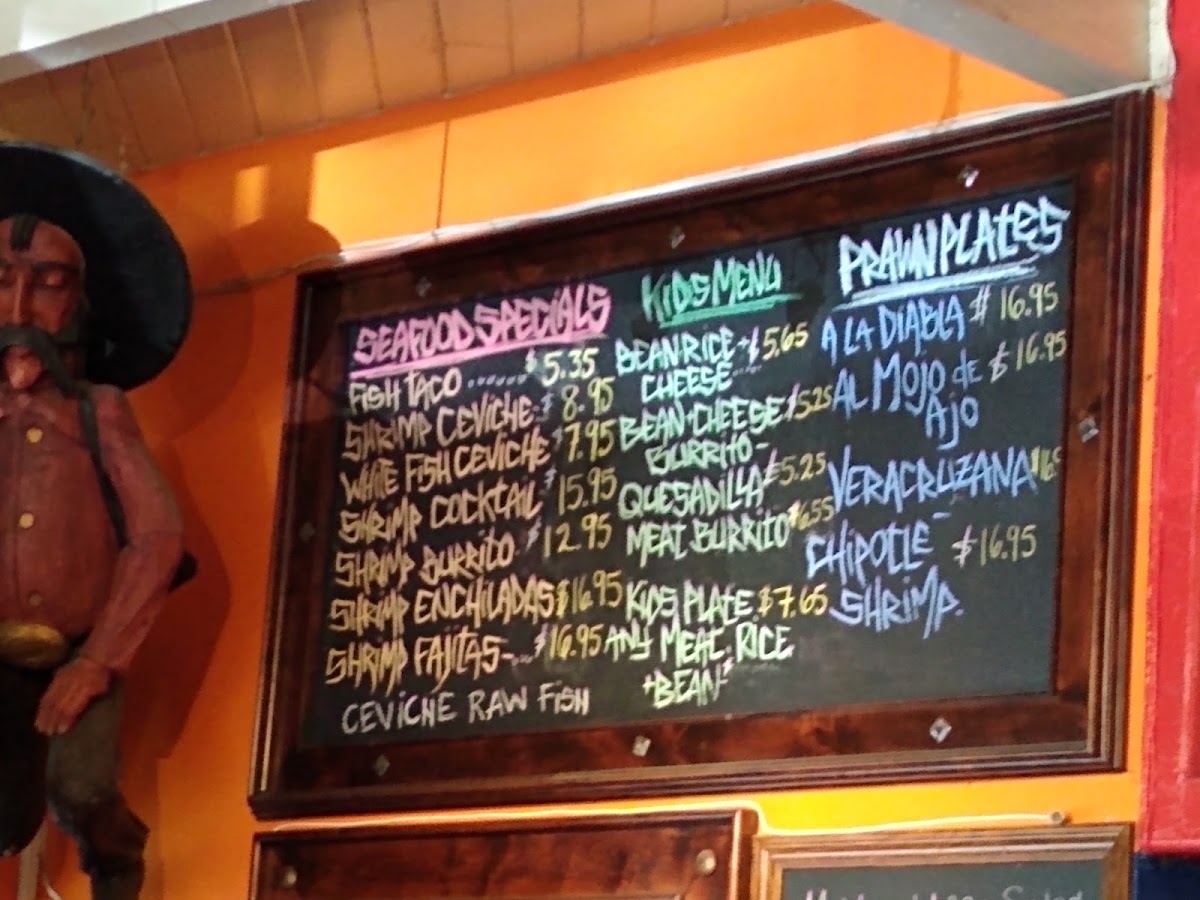 SEAFOOD SPECIALS
FISH TACO ...... $5.35
SHRIMP CEVICHE- $ 8.95
WHITE FISH CEVICHE $ 7.95
SHRIMP COCKTAIL $ 15.95
SHRIMP BURRITO $12.95
SHRIMP ENCHILADAS $16.95
SHRIMP FAJITAS-... $16.95
CEVICHE RAW FISH
KIDS MENU
BEAN+RICE+ $5.65
CHEESE
BEAN+CHEESE $5.25
BURRITO-
QUESADILLA $5.25
MEAT BURRITO $6.55
KIDS PLATE $7.65
ANY MEAT. RICE
+BEAN
PRAWN PLATES
A LA DIABLA $ 16.95
AL MOJO de $16.95
AJO
VERACRUZANA
CHIPOTLE $16.95
SHRIMP.
Salad